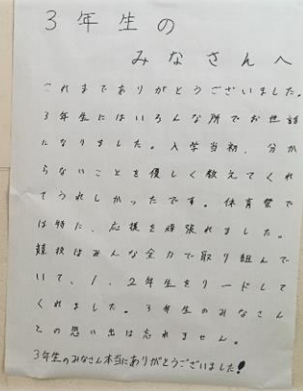 3年生の
みなさんへ
これまでありがとうございました。
3年生にはいろんな所でお世話
になりました。入学当初、分か
らないことを優しく教えてくれ
てうれしかったです。体育祭で
は特に、応援を頑張れました。
競技はみんな全力で取り組んで
いて、1、2年生をリードして
くれました。3年生のみなさん
との思い出は忘れません。
3年生のみなさん本当にありがとうございました!